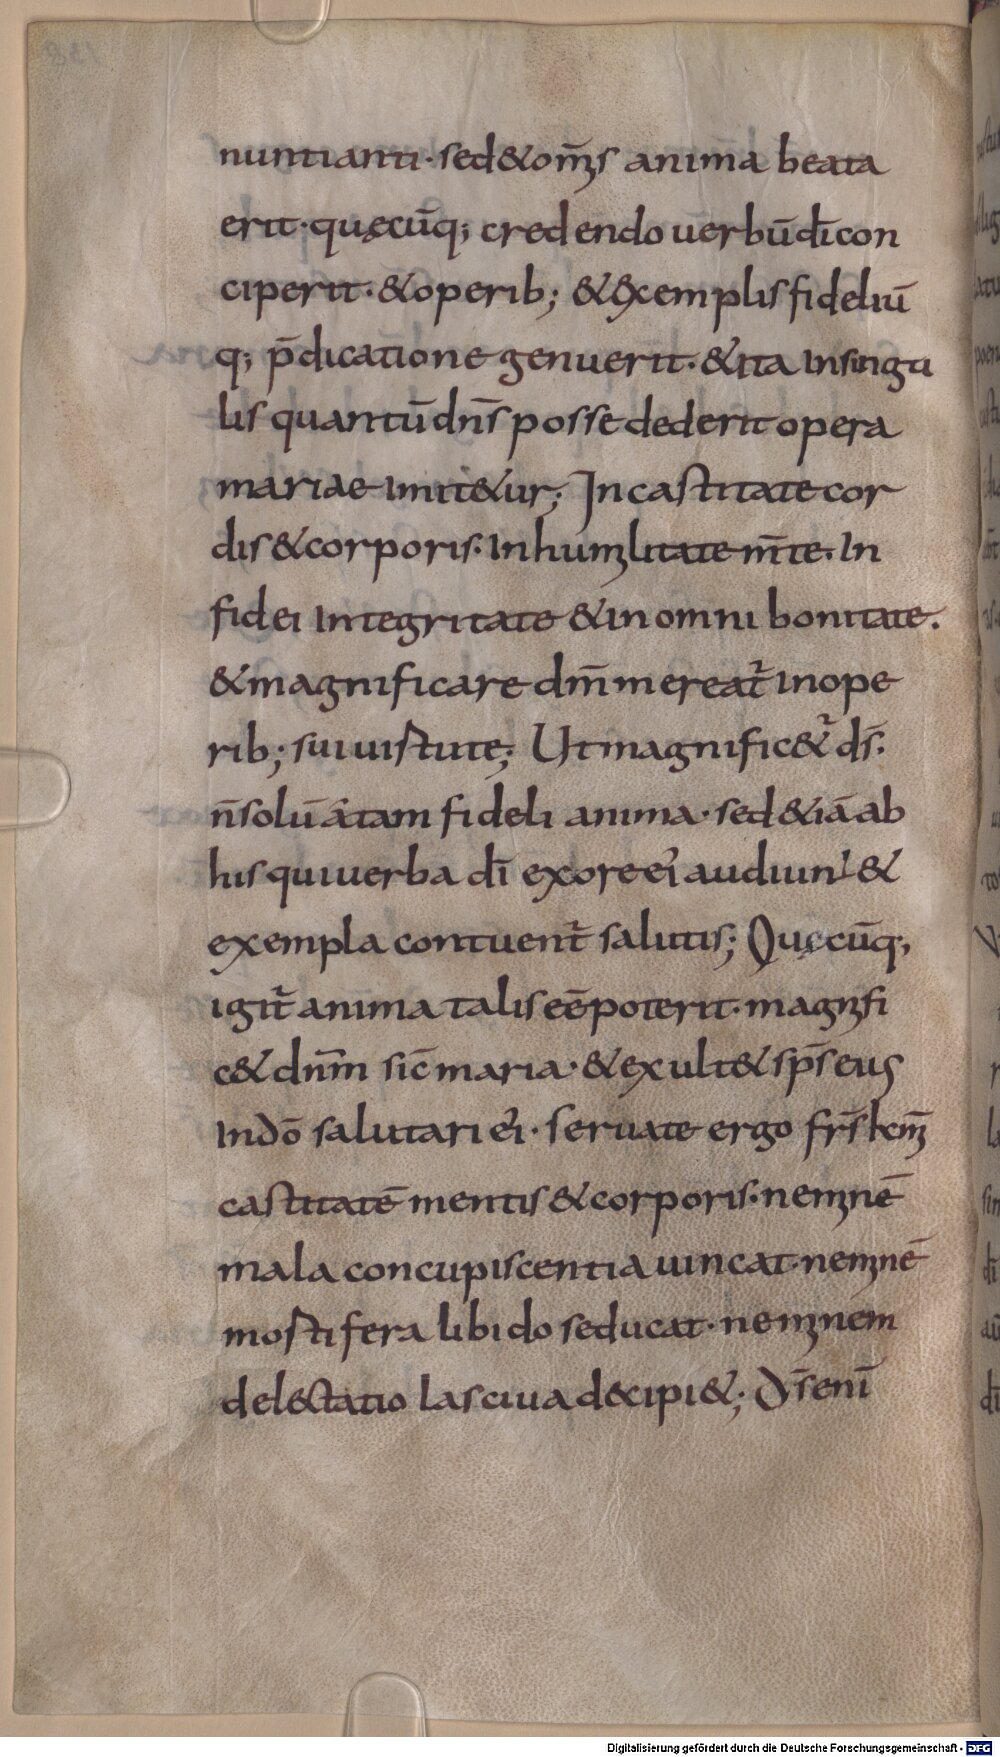 nuntianti· sed & om̄s anima beata
erit· quęcūq; credendo uerbū dī con
ciperit· & operib; & excemplis fideliū
q; p̄dicatione genuerit· & ita insingu
lis quantū dn̄s posse dederit opera
mariae imit&ur; Incastitate cor
dis & corporis· Inhumilitate m̄te· In
fidei integritate & in omni bonitate.
& magnificare dm̄ mereat̄ inope
rib; sui uirtute; Ut magnific&ˀ ds̄·
n̄ solū a᷆tam fideli anima· sed & iā ab
his qui uerba dī exore eiˀ audiunt &
exempla contuent̄ salutis; Quęcūq;
igit̄ anima talis eē poterit· magnifi
c& dn̄m sic̄ maria· & exult& sp̄s eus
Indō salutari eiˀ· seruate ergo fr̄s kr̄m
castitatē mentis & corporis· neminē
mala concupiscentia uincat· neminē
mortifera libido seducat· neminem
delectatio lasciua decipi&; Ds̄ enī
Digitalisierung gefördert durch die Deutsche Forschungsgemeinschaft - DFG